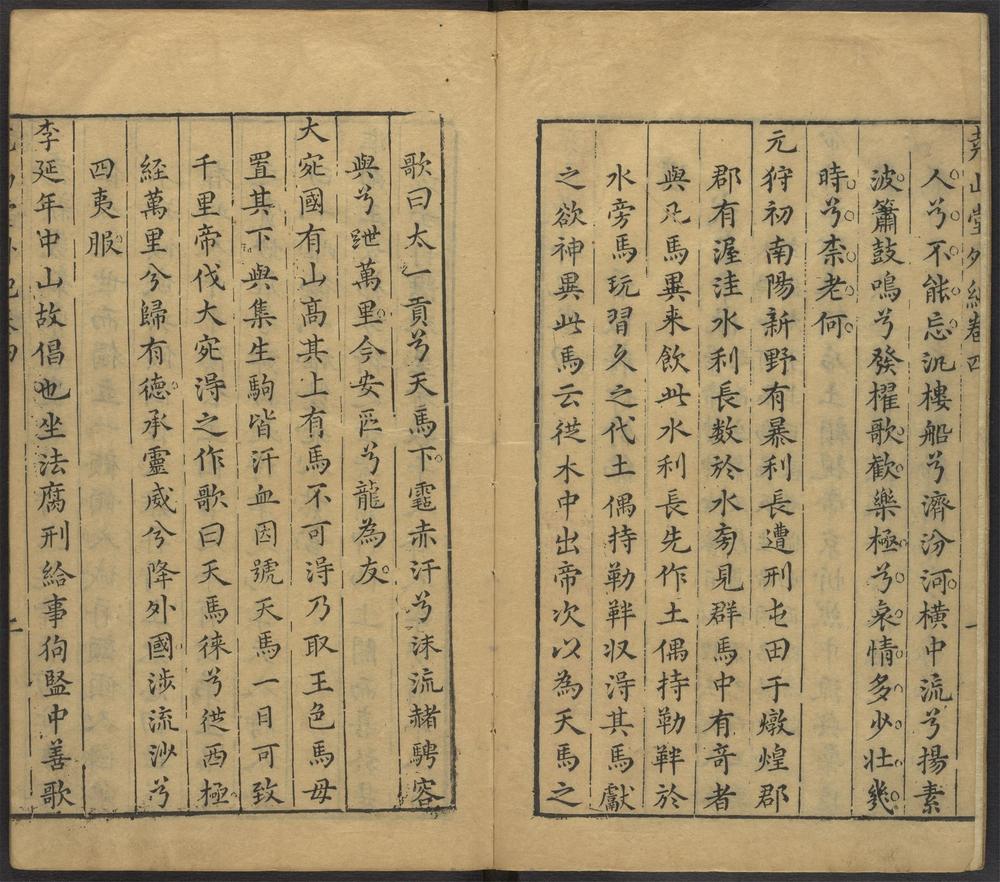 堯山堂外紀卷四
人兮不能忘汎樓船兮濟汾河橫中流兮揚素
波簫鼓鳴兮發櫂歌歡樂極兮哀情多少壯幾
時兮柰老何
元狩初南陽新野有暴利長遭刑屯田于燉煌郡
郡有渥洼水利長数於水旁見群馬中有竒者
與凡馬異来飲此水利長先作土偶持勒靽於
水旁馬玩習久之代土偶持勒靽収淂其馬獻
之欲神異此馬云從水中出帝次以為天馬之
歌曰太一貢兮天馬下霑赤汗兮沫流赭騁容
與兮跇萬里今安匹兮龍為友
大宛國有山高其上有馬不可淂乃取五色馬母
置其下與集生駒皆汗血因號天馬一日可致
千里帝伐大宛淂之作歌曰天馬徠兮從西極
經萬里兮歸有德承靈威兮降外國涉流沙兮
四夷服
李延年中山故倡也坐法腐刑給事狗監中善歌